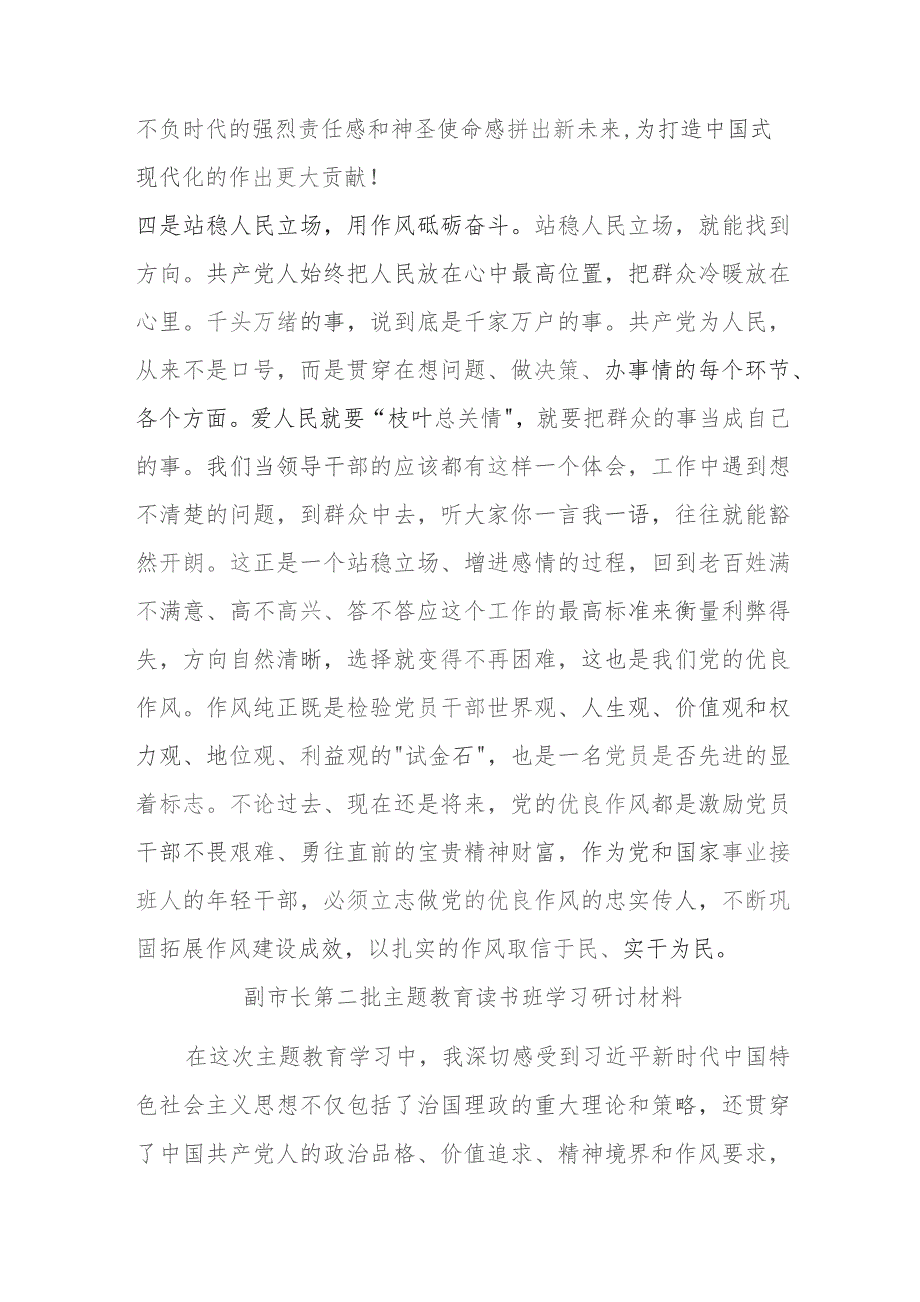 不负时代的强烈责任感和神圣使命感拼出新未来,为打造中国式
现代化的作出更大贡献！
四是站稳人民立场，用作风砥砺奋斗。站稳人民立场，就能找到
方向。共产党人始终把人民放在心中最高位置，把群众冷暖放在
心里。千头万绪的事，说到底是千家万户的事。共产党为人民，
从来不是口号，而是贯穿在想问题、做决策、办事情的每个环节、
各个方面。爱人民就要“枝叶总关情"，就要把群众的事当成自己
的事。我们当领导干部的应该都有这样一个体会，工作中遇到想
不清楚的问题，到群众中去，听大家你一言我一语，往往就能豁
然开朗。这正是一个站稳立场、增进感情的过程，回到老百姓满
不满意、高不高兴、答不答应这个工作的最高标准来衡量利弊得
失，方向自然清晰，选择就变得不再困难，这也是我们党的优良
作风。作风纯正既是检验党员干部世界观、人生观、价值观和权
力观、地位观、利益观的"试金石"，也是一名党员是否先进的显
着标志。不论过去、现在还是将来，党的优良作风都是激励党员
干部不畏艰难、勇往直前的宝贵精神财富，作为党和国家事业接
班人的年轻干部，必须立志做党的优良作风的忠实传人，不断巩
固拓展作风建设成效，以扎实的作风取信于民、实干为民。
副市长第二批主题教育读书班学习研讨材料
在这次主题教育学习中，我深切感受到习近平新时代中国特
色社会主义思想不仅包括了治国理政的重大理论和策略，还贯穿
了中国共产党人的政治品格、价值追求、精神境界和作风要求，